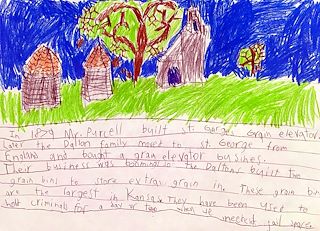 In 1879 Mr. Purcell built St. George grain elevator.
Later the Dalton family moved to St. George from
England and bought a grain elevator busines.
Their business was so the Daltons built two
grain bins to store extra grain in. These grain bins
are the largest in Kansas They have been used to
hold criminals for a day or two when we needed jail space.